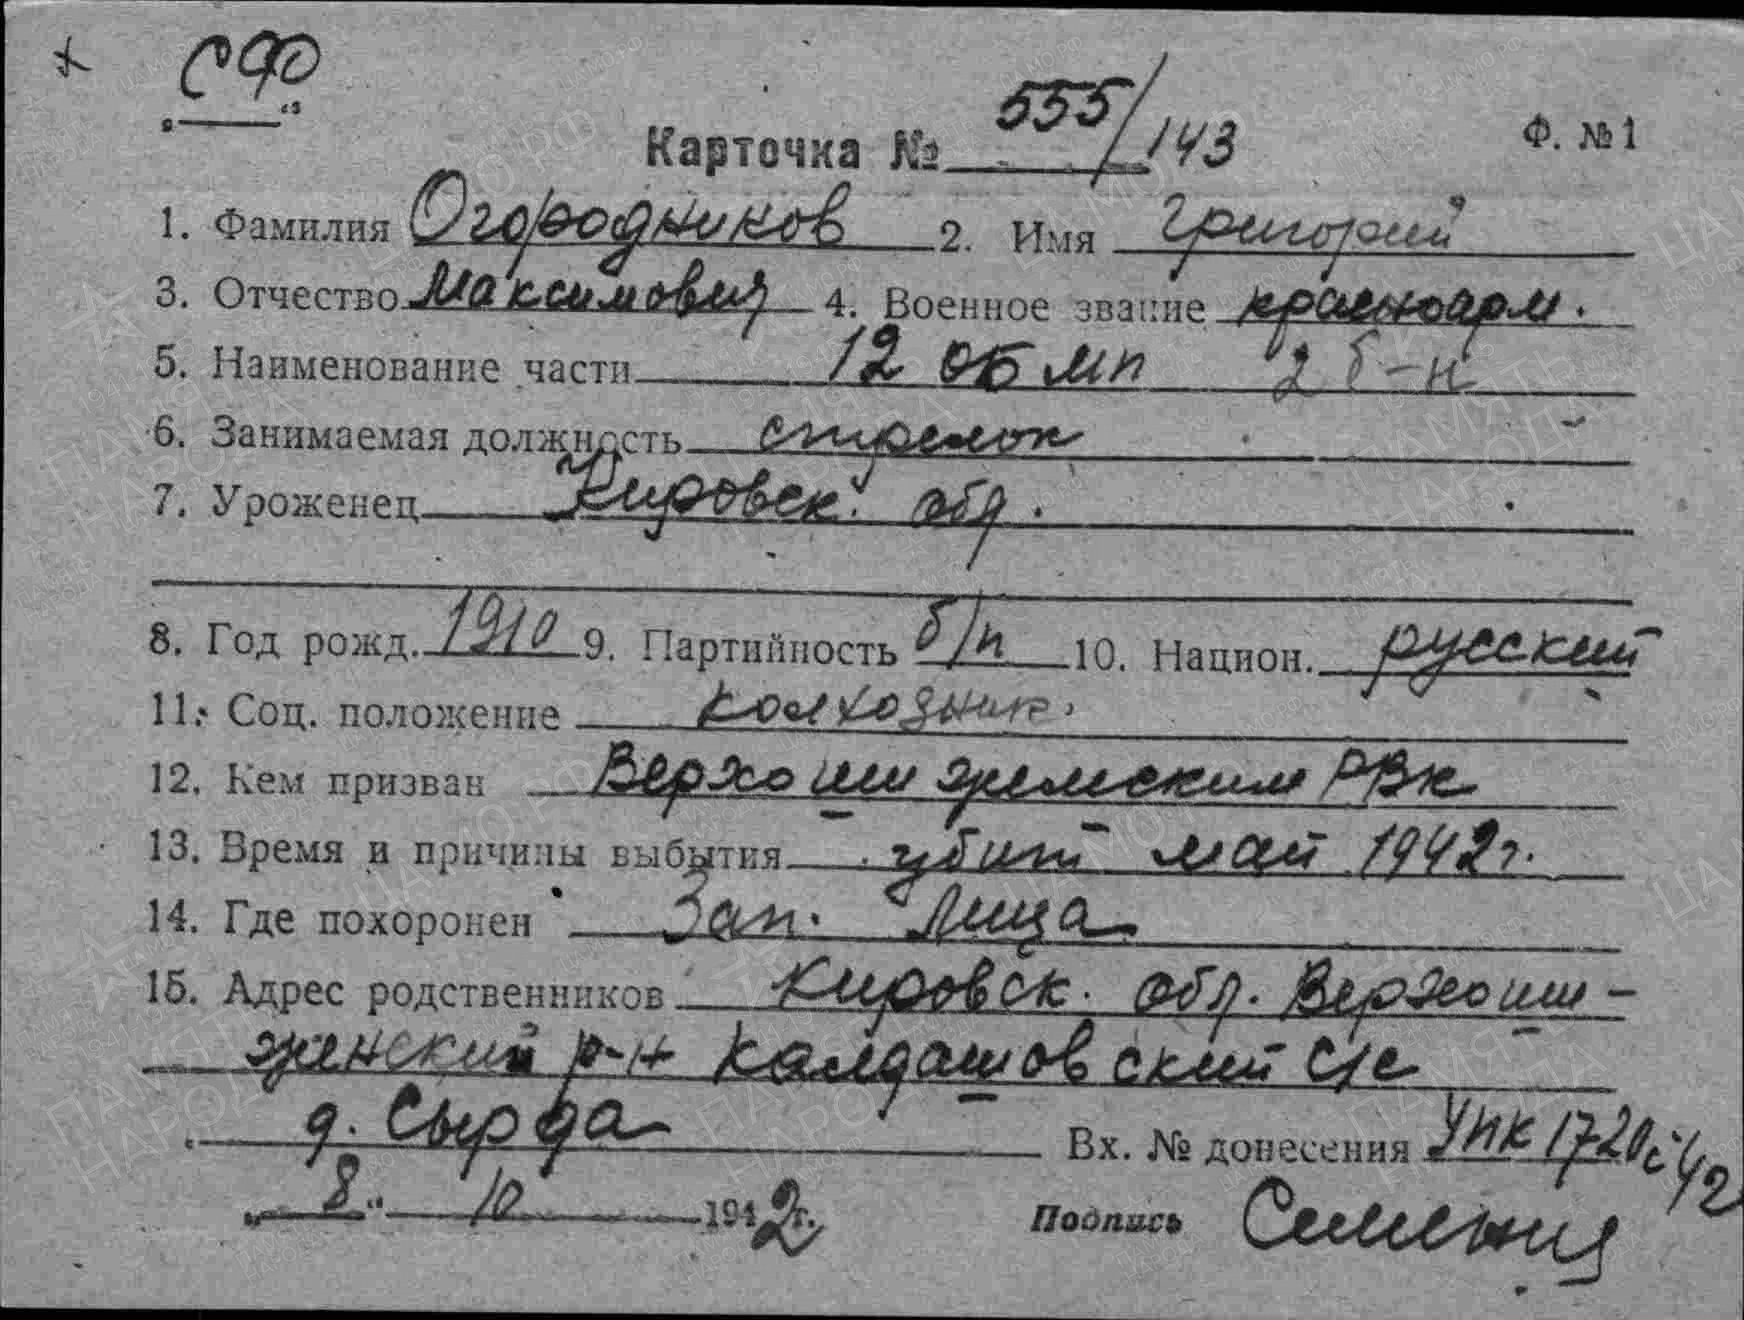 СФ
Карточка № 555/143 Ф. №1
1. Фамилия Огородников 2. Имя Григорий
3. Отчество Максимович 4. Военное звание красноарм.
5. Наименование части 12 ОБ МП 2 б-н
6. Занимаемая должность стрелок
7. Уроженец Кировск. обл.
8. Год рожд. 1910 9. Партийность б/п 10. Национ. русский
11. Соц. положение колхозник.
12. Кем призван Верхошижемским РВК
13. Время и причины выбытия убит май 1942 г.
14. Где похоронен Зап. Лица
15. Адрес родственников Кировск. обл. Верхоши-
женский р-н Калдашовский с/с
д. Сырда Вх. № донесения УПК 1720с/42
"8" 10 1942 г. Подпись